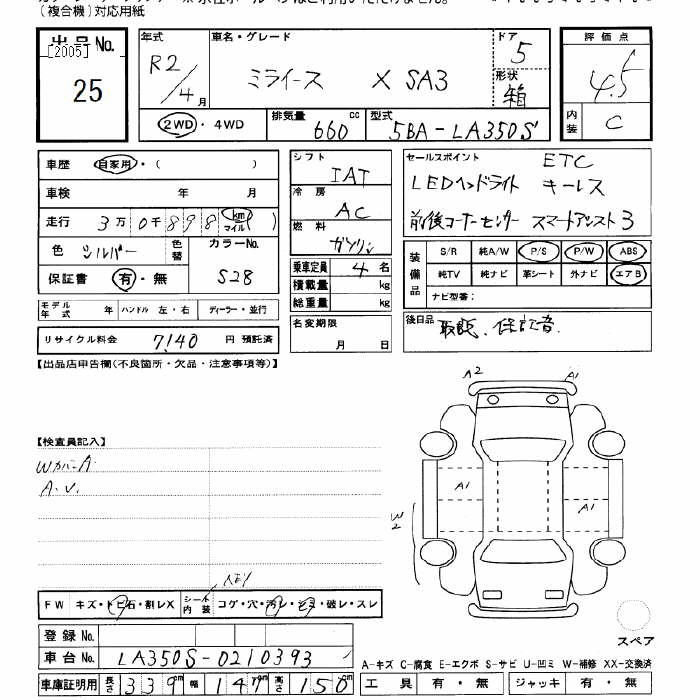 (複合機)対応用紙
出品No.
[2005]
25
年式
R2/4月
車名・グレード
ミライース X SA3
ドア
5
形状
箱
評価点
4.5
内装
C
2WD・4WD
排気量
660 cc
型式
5BA-LA350S
車歴 自家用・( )
車検 年 月
走行 3万0千898 (km マイル)
色 シルバー
色替
カラーNo.
S28
保証書 有・無
シフト
IAT
冷房
AC
燃料
ガソリン
乗車定員 4名
積載量 kg
総重量 kg
名変期限
月 日
セールスポイント ETC
LEDヘッドライト キーレス
前後コーナーセンサー スマートアシスト3
装備品
S/R 純A/W P/S P/W ABS
純TV 純ナビ 革シート 外ナビ エアB
ナビ型番:
後日品
取説、保証書.
モデル年式 年 ハンドル 左・右 ディーラー・並行
リサイクル料金 7,140 円 預託済
【出品店申告欄(不良箇所・欠品・注意事項等)】
A2
A1
A1
A1
W2
【検査員記入】
WカバーA
A.V.
FW キズ・トビ石・割レX
シート内装
コゲ・穴・汚レ・シミ・破レ・スレ
登録No.
車台No. LA350S-0210393
車庫証明用 長さ 339 幅 147 高さ 150
スペア
A-キズ C-腐食 E-エクボ S-サビ U-凹ミ W-補修 XX-交換済
工具 有・無 ジャッキ 有・無